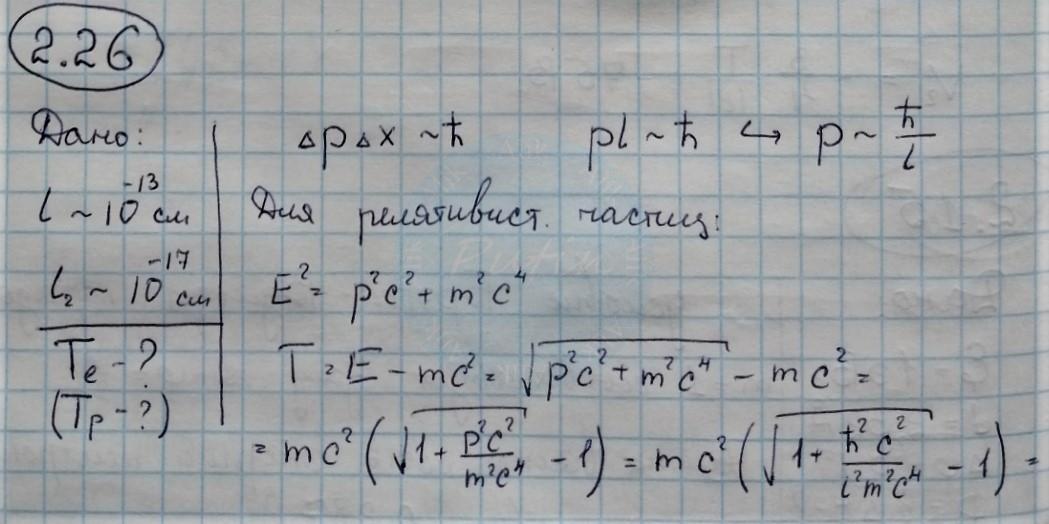 2.26
Дано:
l ~ 10⁻¹³ см
l₂ ~ 10⁻¹⁷ см
Tₑ - ?
(Tₚ - ?)
Δp Δx ~ ħ pl ~ ħ ↪ p ~ ħ/l
Для релятивист. частиц:
E² = p²c² + m²c⁴
T = E - mc² = √(p²c² + m²c⁴) - mc² =
= mc² (√(1 + p²c²/m²c⁴) - 1) = mc² (√(1 + ħ²c²/l²m²c⁴) - 1) =